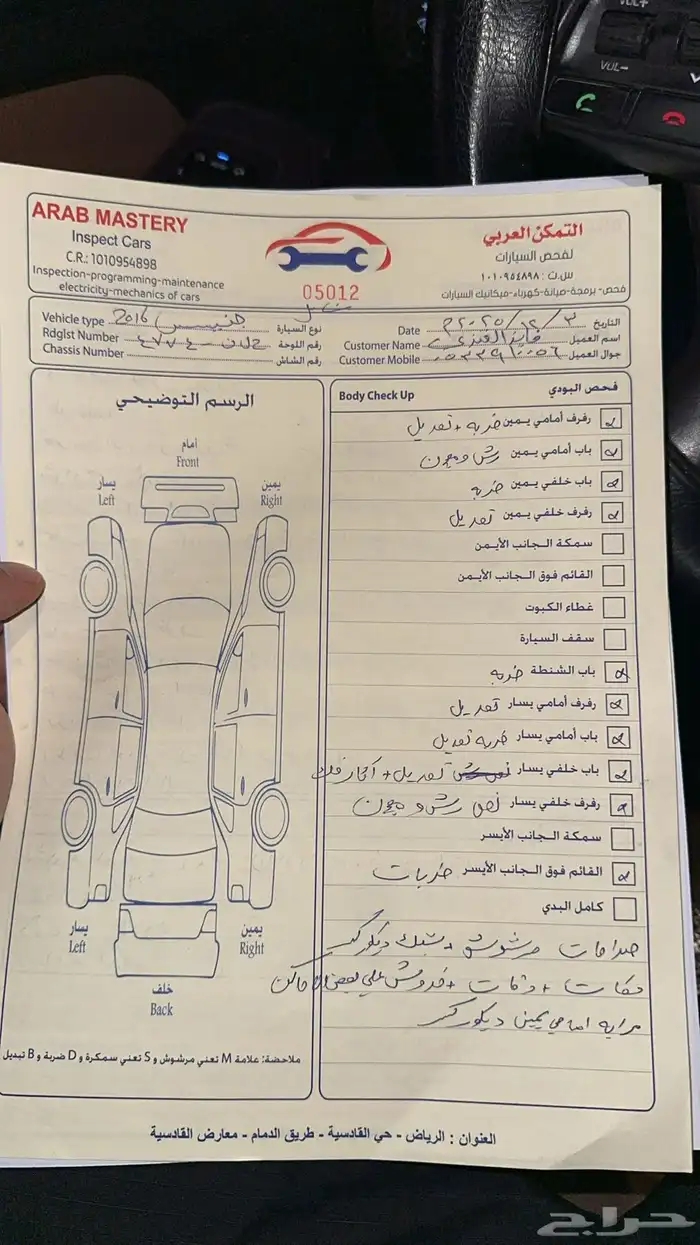 VOL+
VOL-
ARAB MASTERY
Inspect Cars
C.R.: 1010954898
Inspection-programming-maintenance
electricity-mechanics of cars
05012
التمكن العربي
لفحص السيارات
س.ت: ١٠١٠٩٥٤٨٩٨
فحص- برمجة-صيانة-كهرباء-ميكانيك السيارات
Vehicle type جنيسس 2016 نوع السيارة
Rdgist Number رقم اللوحة
Chassis Number رقم الشاش
Date ٢٠٢٥/١٢/٣ التاريخ
Customer Name فايز العنزي اسم العميل
Customer Mobile جوال العميل
الرسم التوضيحي
أمام
Front
يسار
Left
يمين
Right
يسار
Left
يمين
Right
خلف
Back
ملاحظة: علامة M تعني مرشوش و S تعني سمكرة و D ضربة و B تبديل
Body Check Up فحص البودي
رفرف أمامي يمين ضربه + تعديل
باب أمامي يمين رش ومعجون
باب خلفي يمين ضربه
رفرف خلفي يمين تعديل
سمكة الجانب الأيمن
القائم فوق الجانب الأيمن
غطاء الكبوت
سقف السيارة
باب الشنطة ضربه
رفرف أمامي يسار تعديل
باب أمامي يسار ضربه تعديل
باب خلفي يسار تعديل + اثار فك
رفرف خلفي يسار نص رش ومعجون
سمكة الجانب الأيسر
القائم فوق الجانب الأيسر ضربات
كامل البدي
صدامات مرشوش + شبك ديكور كسر
حكات + دقات + خدوش على بعض الاماكن
مرايه امامي يمين ديكور كسر
العنوان : الرياض - حي القادسية - طريق الدمام - معارض القادسية
حراج